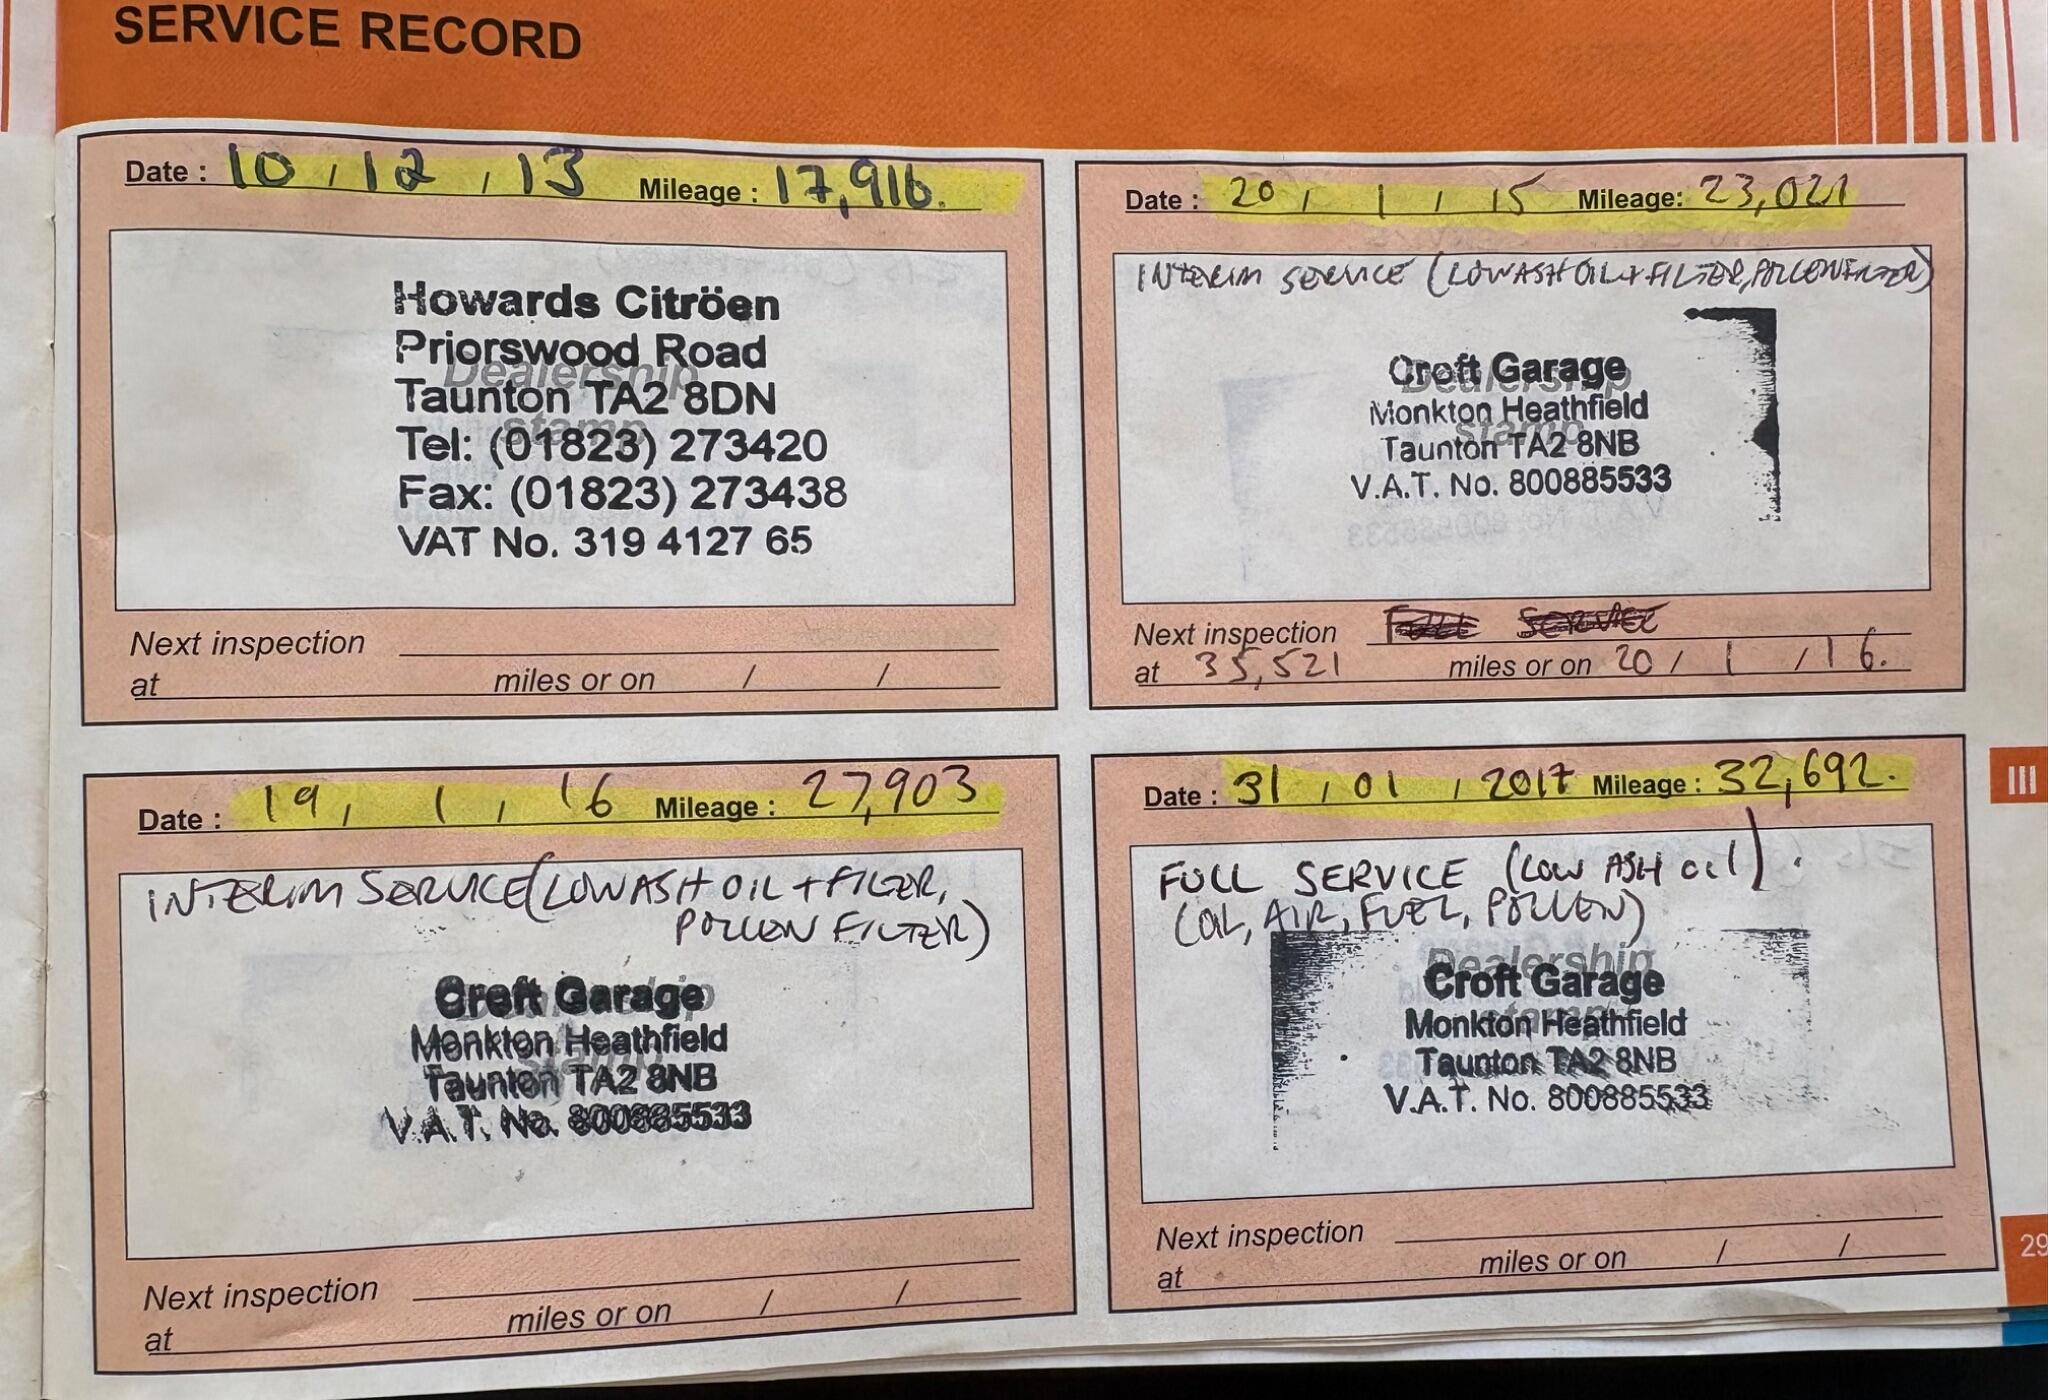 SERVICE RECORD
Date : 10 / 12 / 13 Mileage : 17,916.
Howards Citröen
Priorswood Road
Dealership
Taunton TA2 8DN
stamp
Tel: (01823) 273420
Fax: (01823) 273438
VAT No. 319 4127 65
Next inspection
at miles or on / /
Date : 20 / 1 / 15 Mileage: 23,021
INTERIM SERVICE (LOW ASH OIL + FILTER, POLLEN FILTER)
Croft Garage
Dealership
Monkton Heathfield
stamp
Taunton TA2 8NB
V.A.T. No. 800885533
Next inspection FULL SERVICE
at 35,521 miles or on 20 / 1 / 16.
Date : 19 / 1 / 16 Mileage : 27,903
INTERIM SERVICE (LOW ASH OIL + FILTER,
POLLEN FILTER)
Croft Garage
Monkton Heathfield
stamp
Taunton TA2 8NB
V.A.T. No. 800885533
Next inspection
at miles or on / /
Date : 31 / 01 / 2017 Mileage : 32,692.
FULL SERVICE (LOW ASH OIL).
(OIL, AIR, FUEL, POLLEN)
Dealership
Croft Garage
stamp
Monkton Heathfield
Taunton TA2 8NB
V.A.T. No. 800885533
Next inspection
at miles or on / /
III
29